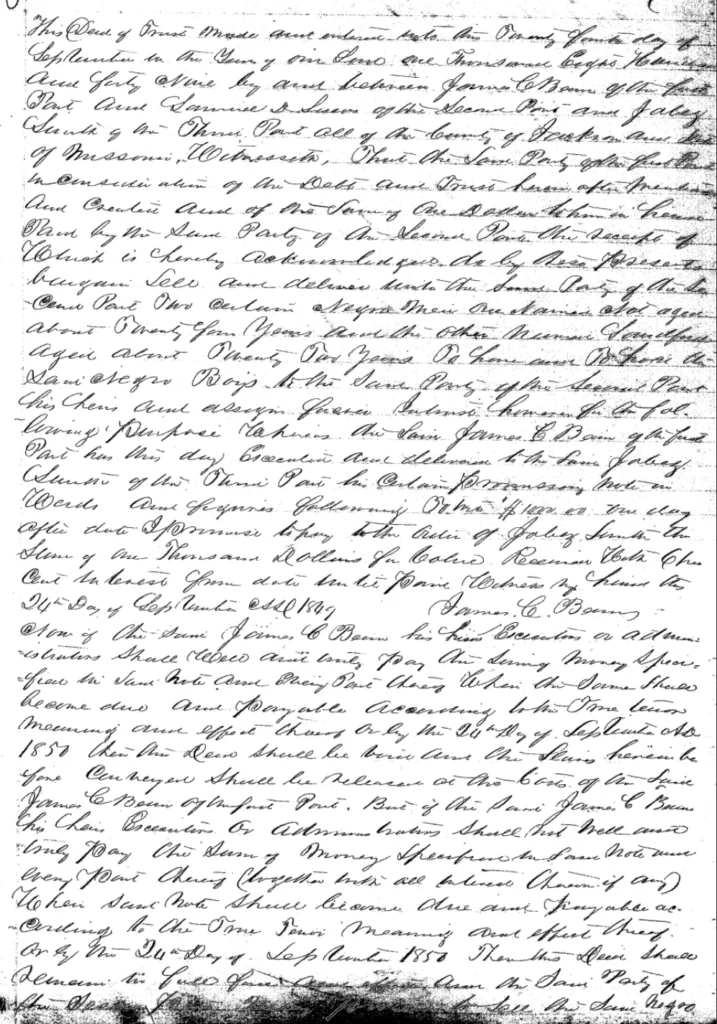 This Deed of Trust made and entered into this Twenty fourth day of
September in the Year of our Lord one Thousand Eight Hundred
And forty Nine by and between James C Bean of the first
Part And Samuel D Lucas of the Second Part and Jabez
Smith of the Third Part all of the County of Jackson and
of Missouri, Witnesseth, That the Said Party of the first Part
in consideration of the Debt and Trust herein after Mention
And Created And of the Sum of One Dollar to him in hand
Paid by the Said Party of the Second Part the receipt of
Which is hereby acknowledged do by these presents
bargain Sell and deliver unto the Said Party of the Se
cond Part Two certain Negro Men One Named Nat aged
about Twenty four Years and the other Named Sandford
aged about Twenty Two Years To have and To hold the
Said Negro Boys to the Said Party of the Second Part
his heirs and assigns forever In trust however for the fol
lowing purpose Whereas the Said James C Bean of the first
Part has this day Executed and delivered to the Said Jabez
Smith of the Third Part his Certain Promissory Note in
Words and figures following To wit $1000.00 One day
after date I promise to pay to the order of Jabez Smith the
Sum of One Thousand Dollars for Value Received With
cent Interest from date until paid Witness my hand this
24th Day of September AD 1849 James C. Bean
Now if the Said James C Bean his heirs Executors or admin
istrators Shall Well and truly pay the Sum of Money Speci
fied in Said Note and Every Part thereof When the Same Shall
become due and payable according to the True tenor
meaning and effect thereof Or by the 24th Day of September AD
1850 then this Deed Shall be void and the Slaves herein be
fore Conveyed Shall be released at the Cost of the Said
James C Bean of the first Part. But if the Said James C Bean
his heirs Executors Or Administrators Shall not Well and
truly pay the Sum of Money Specified in Said Note and
every Part thereof (together with all interest thereon if any)
When Said Note Shall become due and payable ac
cording to the True Tenor Meaning and effect thereof
Or by the 24th Day of September 1850 Then this Deed Shall
remain in full force and the Said Party of
the Second to sell the Said Negro